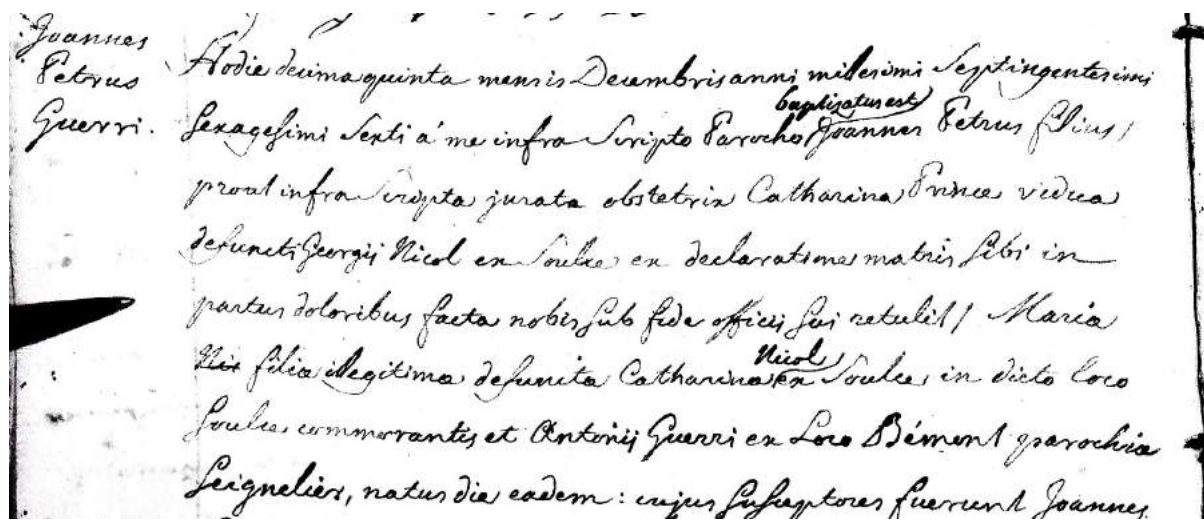 Joannes
Petrus
Guerri.
Hodie decima quinta mensis Decembris anni millesimi Septingentesimi
baptizatus est
Sexagesimi Sexti a me infra Scripto Parocho Joannes Petrus filius /
prout infra Scripta jurata obstetrix Catharina Prince vidua
defuncti Georgij Nicol ex Soulce ex declaratione matris Sibi in
partus doloribus facta nobis Sub fide officij Sui retulit / Maria
Nicol
filia illegitima defuncta Catharina ex Soulce, in dicto loco
Soulce commorantis et Antonij Guerri ex Loco Bémont parochia
Seignelier, natus die eadem : cujus Susceptores fuerunt Joannes